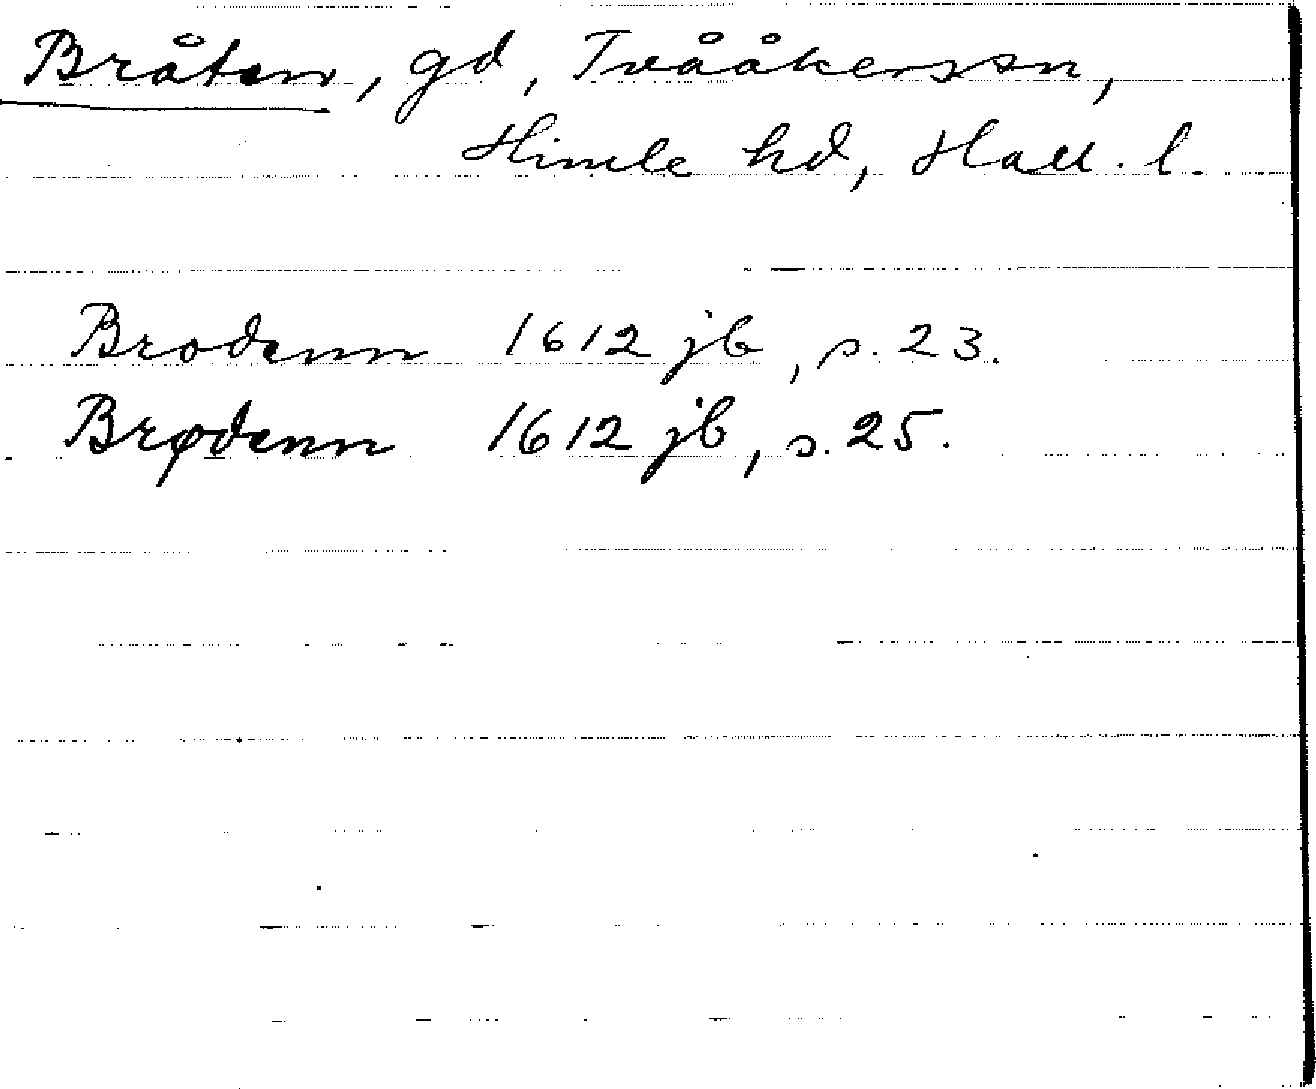 Bråten, gd, Tvååkers sn,
Himle hd, Hall. l.
Brodenn 1612 jb, s. 23.
Brødenn 1612 jb, s. 25.